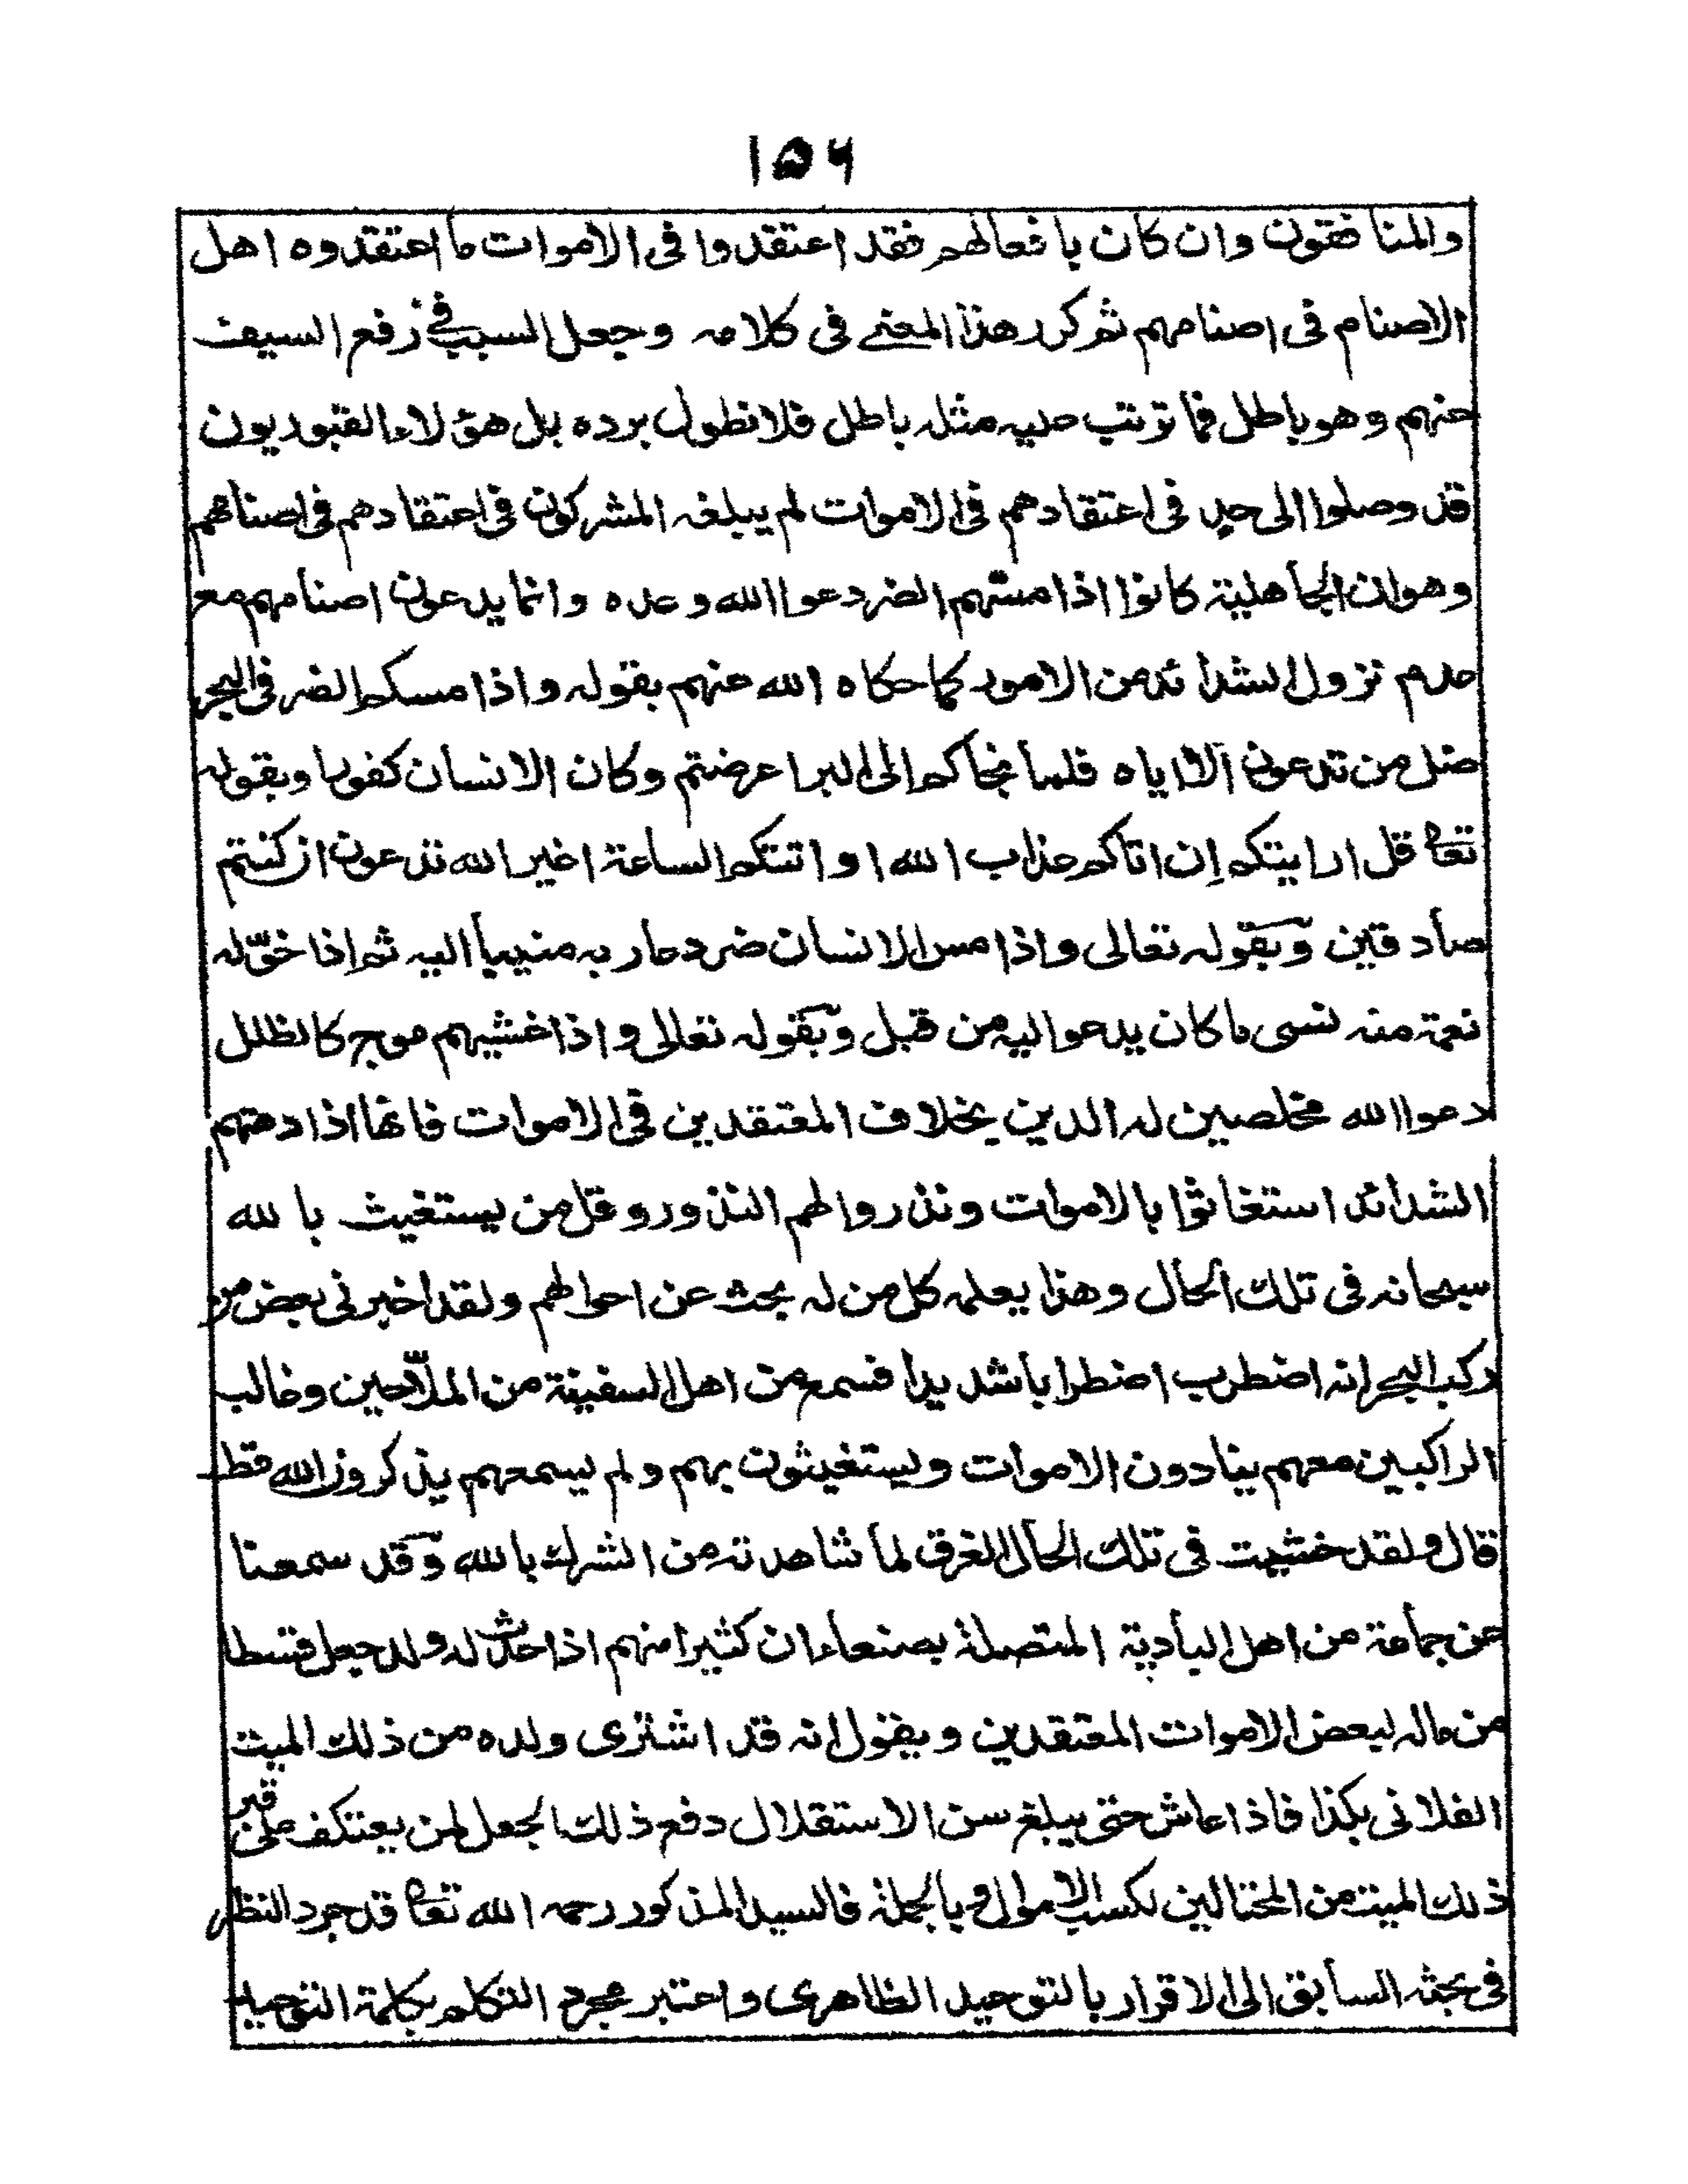 ۱۵۶
والمنافقون وان كان بافعالهم فقد اعتقدوا فى الاموات ما اعتقدوه اهل
الاصنام فى اصنامهم ثم كرر هذا المعنے فى كلامه وجعل السبب فے رفع السيف
عنهم وهو باطل فما ترتب عليه مثله باطل فلا نطول برده بل هؤلاء القبوريون
قد وصلوا الى حدٍ فى اعتقادهم فى الاموات لم يبلغه المشركون فى اعتقادهم فى اصنامهم
وهو ان الجاهلية كانوا اذا مسّهم الضر دعوا الله وحده وانما يدعون اصنامهم مع
عدم نزول الشدائد من الامور كما حكاه الله عنهم بقوله واذا مسكم الضر فى البحر
ضل من تدعون الا اياه فلما نجاكم الى البر اعرضتم وكان الانسان كفورا وبقوله
تعالى قل ارايتكم اِن اتاكم عذاب الله او اتتكم الساعة اغير الله تدعون ان كنتم
صادقين وبقوله تعالى واذا مس الانسان ضر دعا ربه منيبا اليه ثم اذا خوّله
نعمة منه نسى ما كان يدعو اليه من قبل وبقوله تعالى واذا غشيهم موج كالظلل
دعوا الله مخلصين له الدين بخلاف المعتقدين فى الاموات فانها اذا دهتهم
الشدائد استغاثوا بالاموات ونذروا لهم النذور وقل من يستغيث بالله
سبحانه فى تلك الحال وهذا يعلمه كل من له بحث عن احوالهم ولقد اخبرنى بعض من
ركب البحر انه اضطرب اضطرابا شديدا فسمع من اهل السفينة من الملّاحين وغالب
الراكبين معهم ينادون الاموات ويستغيثون بهم ولم يسمعهم يذكرون الله قط
قال ولقد خشيت فى تلك الحال الغرق لما شاهدته من الشرك بالله وقد سمعنا
عن جماعة من اهل البادية المتصلة بصنعاء ان كثيرا منهم اذا حدث له ولد جعل قسطا
من ماله لبعض الاموات المعتقدين ويقول انه قد اشترى ولده من ذلك الميت
الفلانى بكذا فاذا عاش حتى يبلغ سن الاستقلال دفع ذلك الجعل لمن يعتكف على قبر
ذلك الميت من المحتالين لكسب الاموال وبالجملة فالسيد المذكور رحمه الله تعالى قد جرد النظر
فى بحثه السابق الى الاقرار بالتوحيد الظاهرى واعتبر مجرد التكلم بكلمة التوحيد